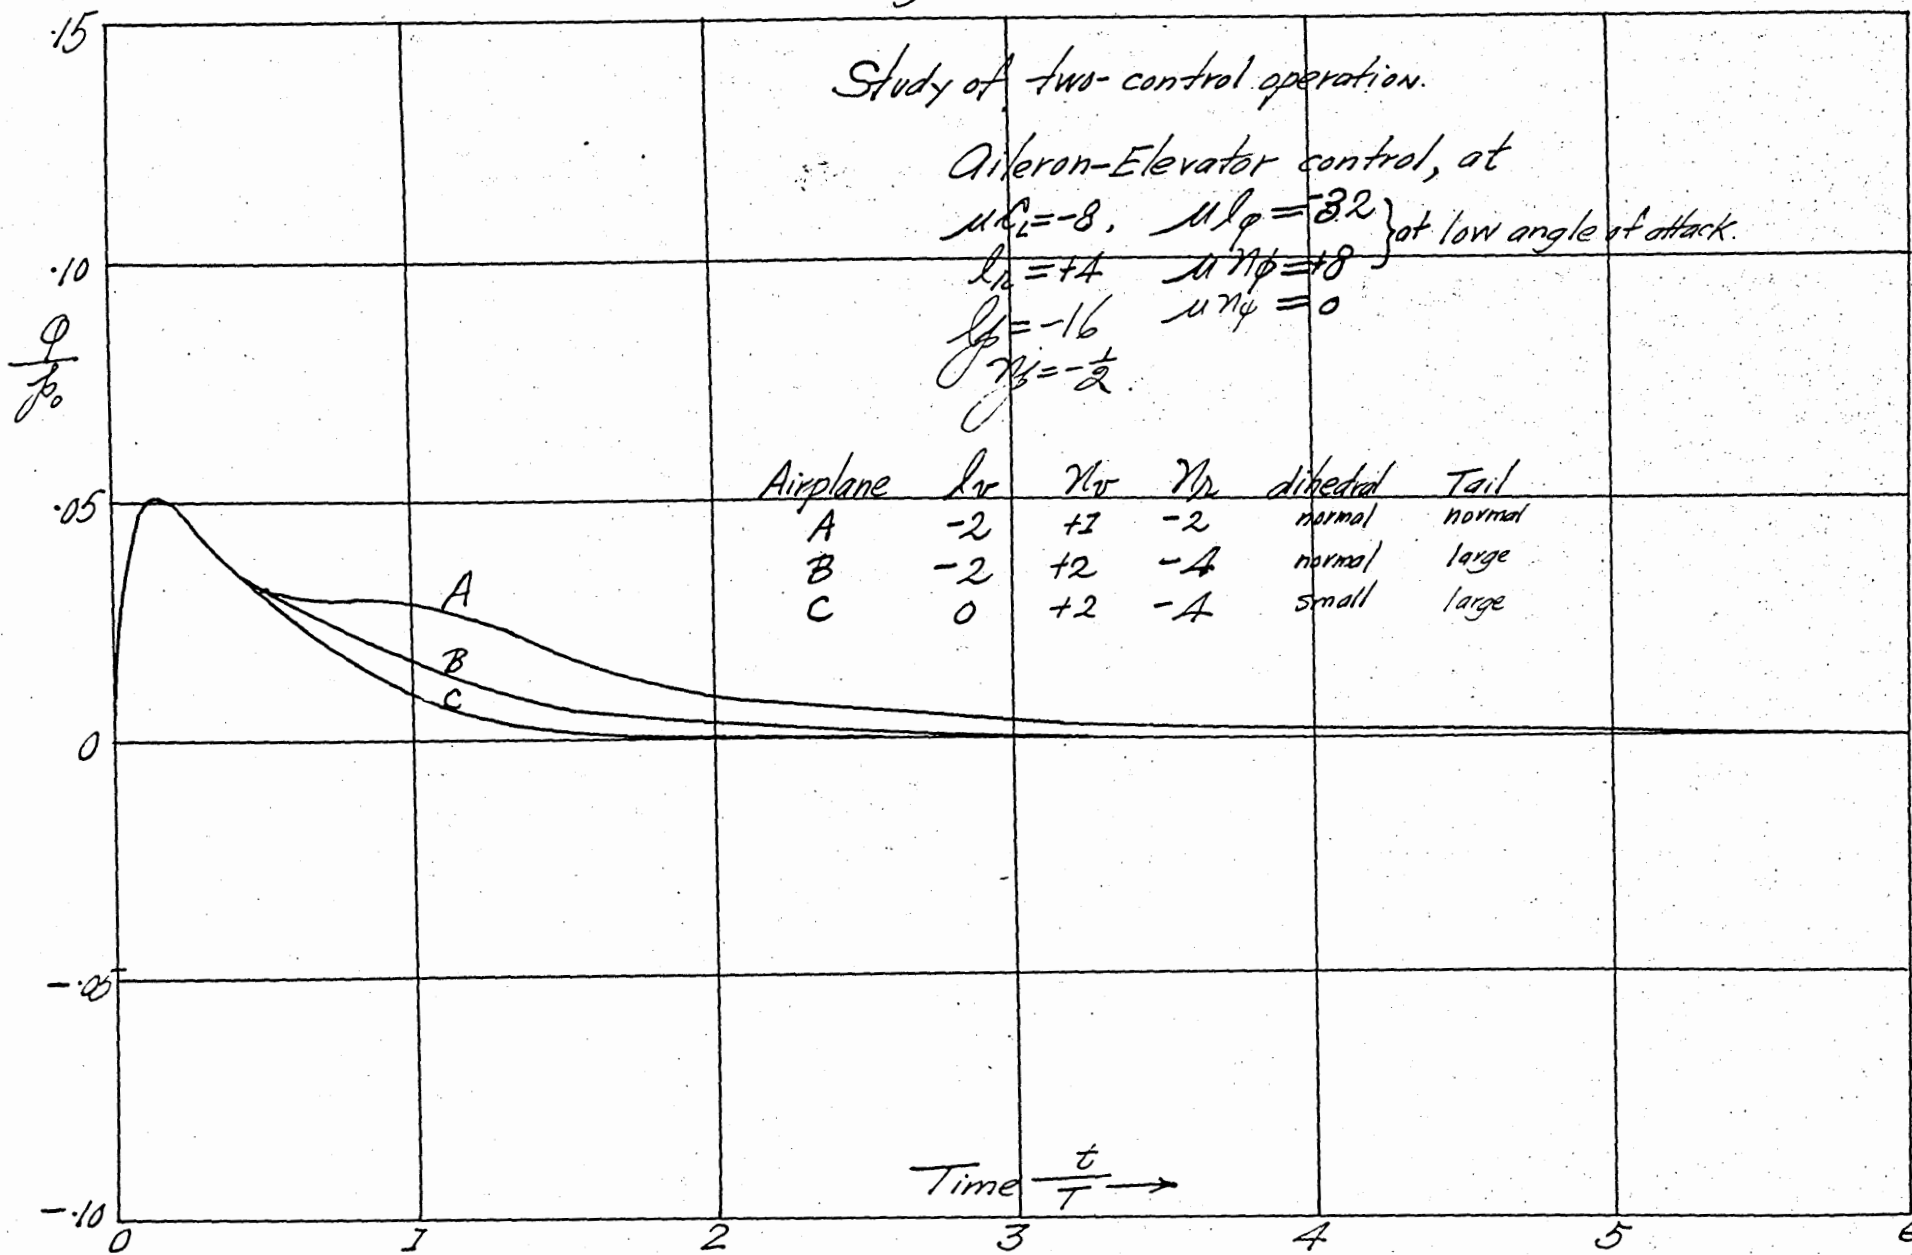 .15
Study of two-control operation.
Aileron-Elevator control, at
μC_L=-8, μl_φ=-32 } at low angle of attack.
.10
l_r=+4 μn_φ=+8
φ/p₀
l_p=-16 μn_ψ=0
n_p=-1/2.
Airplane l_v n_v n_r dihedral Tail
.05
A -2 +1 -2 normal normal
B -2 +2 -4 normal large
C 0 +2 -4 small large
A
B
C
0
-.05
Time t/T →
-.10
0 1 2 3 4 5 6